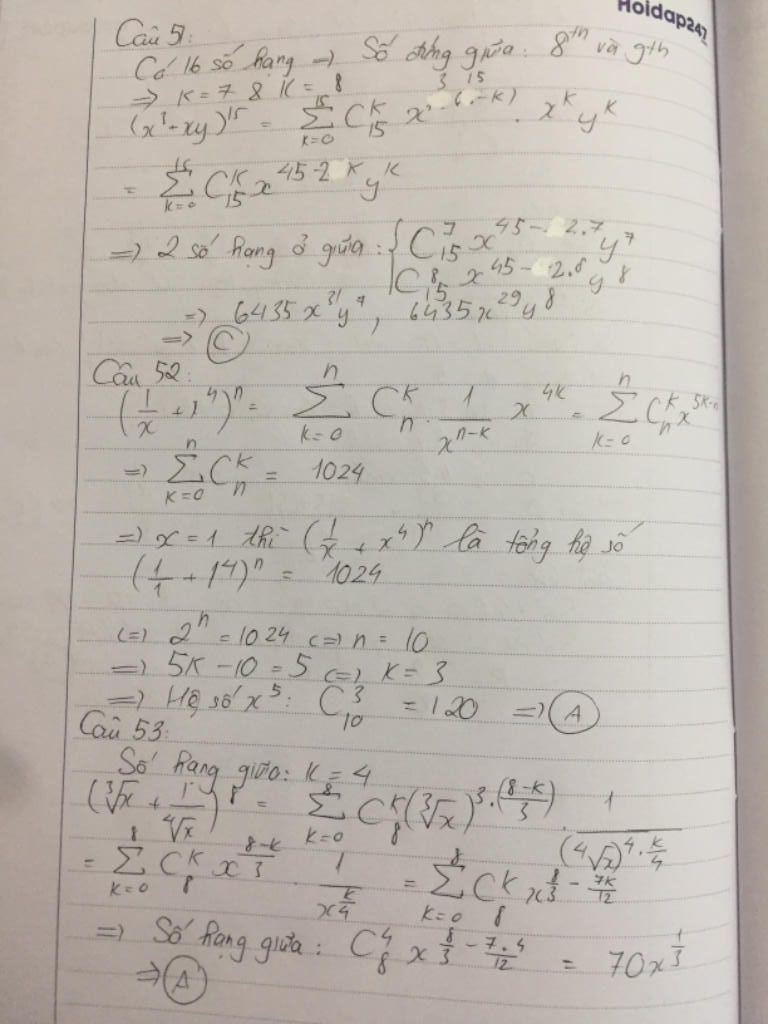 Hoidap247
Câu 51:
Có 16 số hạng => Số đứng giữa: 8th và 9th
=> K = 7 & K = 8
(x³+xy)¹⁵ = ∑_{k=0}^{15} C_{15}^{k} x^{3(15-k)} . x^k y^k
= ∑_{k=0}^{15} C_{15}^{k} x^{45-2k} y^k
=> 2 số hạng ở giữa: { C_{15}^{7} x^{45-2.7} y^7
C_{15}^{8} x^{45-2.8} y^8
=> 6435 x^{31} y^7, 6435 x^{29} y^8
=> C
Câu 52:
(1/x + 1^4)^n = ∑_{k=0}^{n} C_n^k . 1/x^{n-k} x^{4k} = ∑_{k=0}^{n} C_n^k x^{5k-n}
=> ∑_{k=0}^{n} C_n^k = 1024
=> x = 1 thì (1/x + x^4)^n là tổng hệ số
(1/1 + 1^4)^n = 1024
<=> 2^n = 1024 <=> n = 10
=> 5K - 10 = 5 <=> K = 3
=> Hệ số x^5: C_{10}^{3} = 120 => A
Câu 53:
Số hạng giữa: K = 4
(∛x + 1/∜x)^8 = ∑_{k=0}^{8} C_8^k (∛x)^{3.(8-k)/3} . 1/(∜x)^{4.k/4}
= ∑_{k=0}^{8} C_8^k x^{(8-k)/3} . 1/x^{k/4} = ∑_{k=0}^{8} C_8^k x^{8/3 - 7k/12}
=> Số hạng giữa: C_8^4 x^{8/3 - 7.4/12} = 70x^{1/3}
=> A